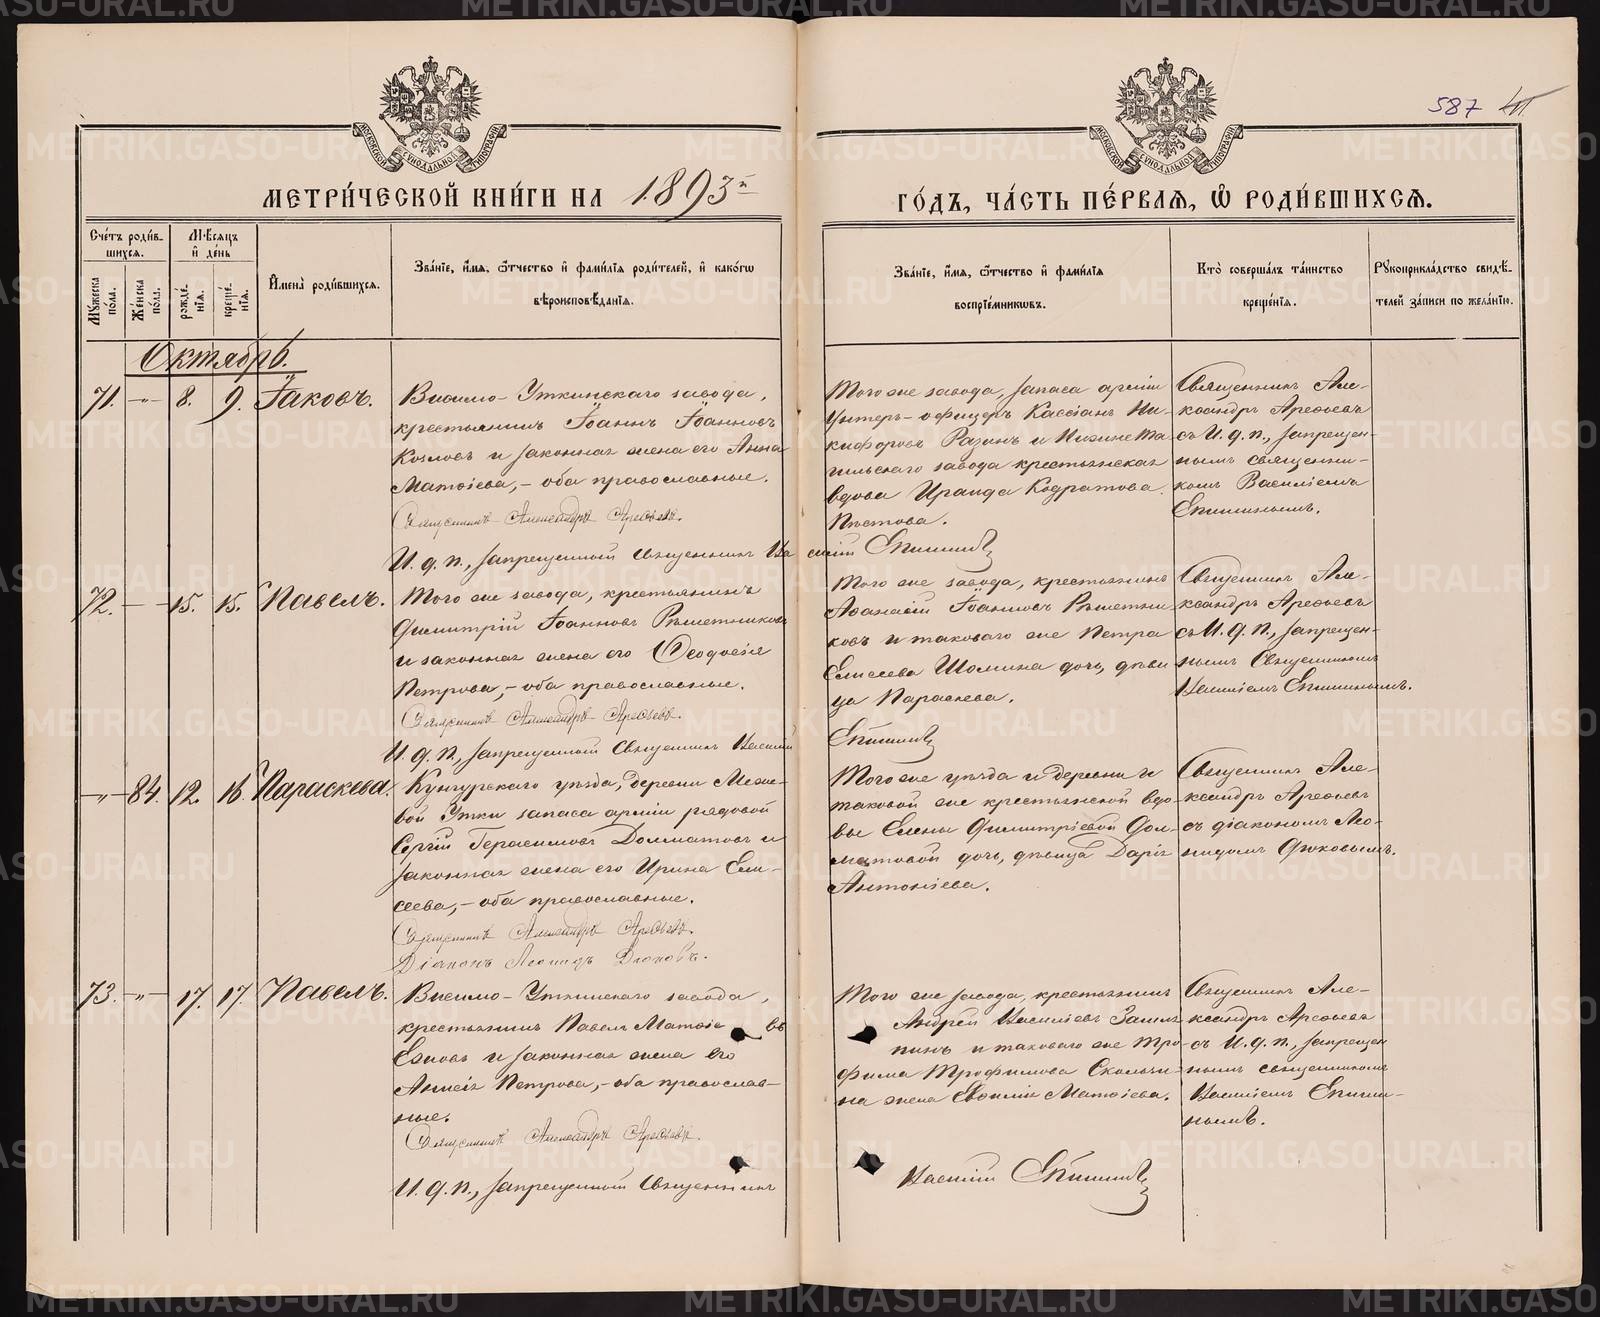 587
МЕТРИ́ЧЕСКОЙ КНИ́ГИ НА 1893й
ГО́ДЪ, ЧА́СТЬ ПЕ́РВАѦ, Ѽ РОДИ́ВШИХСѦ.
Сче́тъ роди́вшихся.
Мѣ́сяцъ и де́нь
Мꙋ́жеска по́ла.
Же́нска по́ла.
рожде́нїя.
креще́нїя.
Имена̀ роди́вшихся.
Зва́нїе, и́мя, ѻ́тчество и фами́лїя роди́телей, и како́гѡ вѣроисповѣ́данїя.
Зва́нїе, и́мя, ѻ́тчество и фами́лїя воспрїе́мниковъ.
Кто̀ соверша́лъ та́инство креще́нїя.
Рꙋкоприкла́дство свидѣ́телей за́писи по жела́нїю.
Октябрь.
71. -"- 8. 9. Іаковъ.
Висимо-Уткинскаго завода,
крестьянинъ Іоаннъ Іоанновъ
Козловъ и законная жена его Анна
Матѳіева,- оба православные.
Священникъ Александръ Арефьевъ.
И. д. п., запрещенный священникъ Ва силій Епишинъ
Того же завода, запаса арміи
Унтеръ-офицеръ Кассіанъ Ни-
кифоровъ Разинъ и Нижне Та-
гильскаго завода крестьянская
вдова Ираида Кодратова
Священникъ Але-
ксандръ Арефьевъ
съ И. д. п., запрещен-
нымъ священни-
комъ Василіемъ
Епишинымъ.
72. - - 15. 15. Павелъ.
Того же завода, крестьянинъ
Димитрій Іоанновъ Рѣшетниковъ
и законная жена его Ѳеодосія
Петрова,- оба православные.
Священникъ Александръ Арефьевъ.
И. д. п., запрещенный Священникъ Василій
Епишинъ
Того же завода, крестьянинъ
Аѳанасій Іоанновъ Рѣшетни-
ковъ и таковаго же Петра
Елисеева Шомина дочь, дѣви-
ца Параскева.
Священникъ Але-
ксандръ Арефьевъ
съ И. д. п., запрещен-
нымъ Священникомъ
Василіемъ Епишинымъ.
-"- 84. 12. 16. Параскева.
Кунгурскаго уѣзда, деревни Меже-
вой Утки запаса арміи рядовой
Сергій Герасимовъ Долматовъ и
законная жена его Ирина Ели-
сеева,- оба православные.
Священникъ Александръ Арефьевъ.
Діаконъ Леонидъ Дюковъ.
Того же уѣзда и деревни и
таковой же крестьянской вдо-
вы Елены Димитріевой Дол-
матовой дочь, дѣвица Дарія
Антоніева.
Священникъ Але-
ксандръ Арефьевъ
съ діакономъ Лео-
нидомъ Дюковымъ.
73. -"- 17. 17. Павелъ.
Висимо-Уткинскаго завода,
крестьянинъ Павелъ Матѳіевъ
Езловъ и законная жена его
Анисія Петрова,- оба православ-
ные.
Священникъ Александръ Арефьевъ.
И. д. п., запрещенный Священникъ
Василій Епишинъ
Того же завода, крестьянинъ
Андрей Василіевъ
и таковаго же Тро-
фима Трофимова
на жена Евфимія Матѳіева.
Священникъ Але-
ксандръ Арефьевъ
съ И. д. п., запрещен
нымъ священникомъ
Василіемъ Епиши-
нымъ.